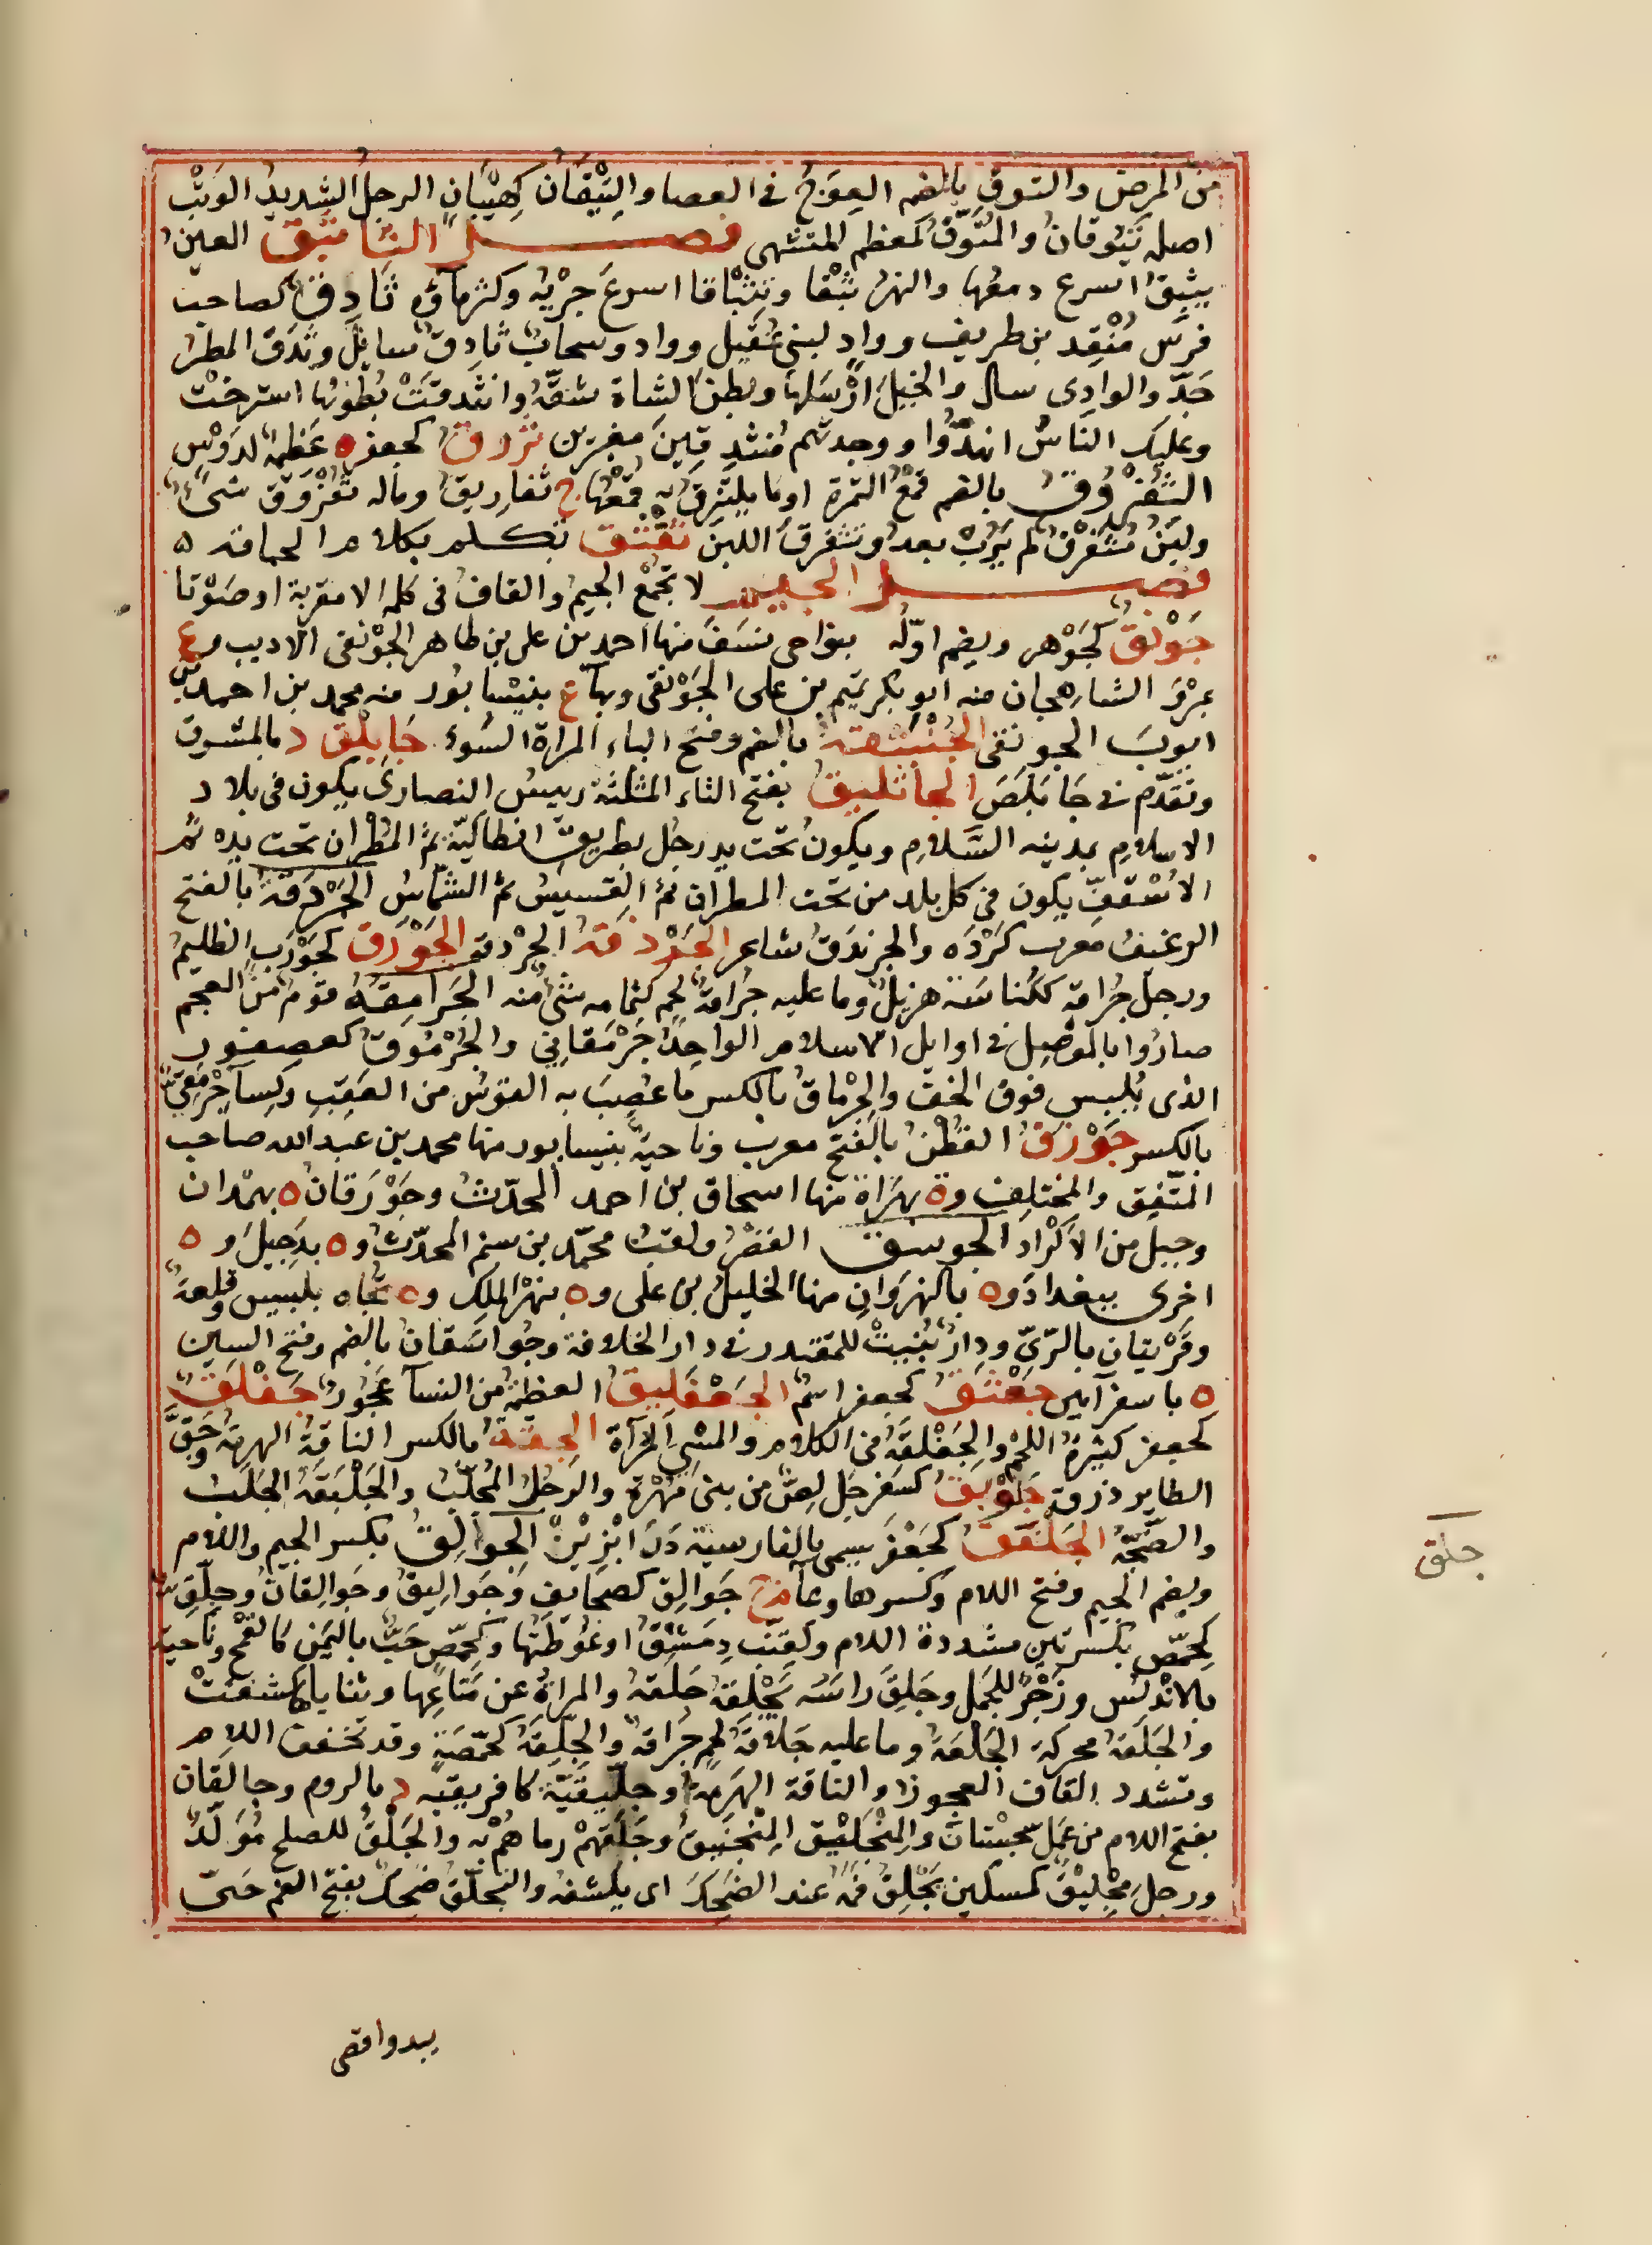 من المرض والتوق بالضم العِوَجُ في العصا والتِيَّقان كهَيِّبَان الرجل الشديد الوَثْب
اصله تَيْوقانُ والمُتَوَّقُ كمعظم المتشهى فصل الثا ثبق العين
يثبق اسرع دمعها والنهر ثَبْقا وتَثْباقا اسرعَ جَرْيُه وكثر ماؤه ثَادِقٌ كصاحب
فرس مُنْقِد بن طريف وواد لبني عُقَيل وواد وسحابٌ ثادِقٌ سايلٌ وثدق المطر
جَدَّ والوادى سال والخيلَ ارْسَلها وبطن الشاة شقّهُ وانثدقَتْ بُطونُها استرخت
وعليك الناسُ انهدُّوا ووجدتهم مُنثدِقين مغيرين ثروق كجعفر ه عظيمة لدَوْسٍ
الثُفْرُوقُ بالضم قمع التمرة او ما يلتزق به قمعها ج ثفاريق وماله ثُفْرُوقٌ شئ
ولبن مُثَفْرَق لم يَرُبْ بعد وتثفرق اللبن ثقثق تكلم بكلام الحماقه ه
فصل الجيم لا تجمع الجيم والقاف فى كلمة الا معربة او صَوْتا
جَوْبَقٌ كجَوْهر ويضم اوّله بنواحى نسَفَ منها احمد بن على بن طاهر الجَوْبقى الاديب وع
بمرْوَ الشاهجان منه ابو بكر تميم بن على الجَوْبقى وبهاء ع بنيسابور منه محمد بن احمد بن
ايوب الجوبقى الجُنْبُثقة بالضم وفتح الباء المراة السُوء جَابَلْق د بالمشرق
وتقدّم فى جَابَلَصَ الجاثَليق بفتح الثاء المثلثة رييس النصارى يكون فى بلاد
الاسلام بمدينه السَّلام ويكون تحت يد رجل بطريق انطاكيّة ثم المطران تحت يده ثم
الاُسْقف يكون فى كل بلد من تحت المطران ثم القسيس ثم الشماس الجَرْدقة بالفتح
الرغيف معرب كرْدَه والجرندق شاعر الجَرْذقة الجرْدقة الجَوْرَق كجَوْرَب الظليم
ورجل جُراقة ككُناسَة هزيل وما عليه جُراقةُ لحم كثمامه شئ منه الجَرامقة قوم من العجم
صارُوا بالموصل فى اوايل الاسلام الواحد جَرْمَقانى والجُرْمُوق كعصفور
الذى يُلبس فوق الخف والجِرْماق بالكسر ما عُصبَ به القوس من العَقَب وكساء جِرْمقىّ
بالكسر جَوْزقُ القطن بالفتح معرب وناحية بنيسابور منها محمد بن عبد الله صاحب
المتّفِق والمختلف وة بهَراة منها اسحاق بن احمد المحدّث وجَوْزَقان ه بهمْدان
وجبل من الاَكْرَاد الجوسق القصْر ولقب محمّد بن مسلم المحدّث وه بدُجَيل و ه
اخرى ببغداد وه بالنهرَوان منها الخليل بن على وه بنهْر الملك وه تجاه بلبيس وقلعة
وقرْيتان بالرّىّ ودارٌ بُنيَتْ للمقتدر فى دار الخلافة وجُواسَقان بالضم وفتح السين
ه باسفراين جَعْثَق كجعفر اسْم الجَعْفَليق العظيمة من النساء عجوز جَعْفَلِقٌ
كجعفر كثيرة اللحم والجَفْلقة فى الكلام والمشى المراءة الجِقّة بالكسر الناقة الهرمة وجَقَّ
الطاير ذرق جَلَوْبَق كسفرجل لِصٌّ من بنى مَهْرة والرجلُ المُجلّب والجَلْبَقة الجَلبُ
والضجّة الجَلْفَق كجَعْفر يسمى بالفارسية دَرَابْزِيْن الجوالِق بكسر الجيم واللام
وبضم الجيم وفتح اللام وكسرها وعاء م ج جَوالِق كصحَايف وجَواليق وجَوالِقات وجِلِّق
كحِمّص بكسرتين مشددة اللام وكقِنّب دِمَشْقُ اوغُوطَتُها وكحِمّص حَبٌّ باليَمَن كالقَمْح وناحية
بالاندلُس وزَجْرٌ للجَمل وجَلَقَ راسَه يَجْلِقُه حَلَقه والمراةُ عن متاعِها وثناياها كشفَتْ
والجَلَقة محركة الجَلَعَة وما عليه جَلاقةُ لحم جَراقةٌ والجِلِّقَةُ كحِمّصَة وقد تخفف اللام
وتشدد القاف العجوز والناقة الهَرِمة وجلّيقيّة كافريقيه د بالروم وجالَقان
بفتح اللام من عمَل سجِسْتان والمنْجَليق المنْجَنيق وجلَقهمْ رماهُمْ به والجَلْق للصلح مُوَلّدٌ
ورجل مِجْليْق كمسكين يَجْلِق فمَه عند الضَحِك اى يكشفه والتجلّق ضَحِك بفتح الفم حَتى
جلق
يبدوا اقصى